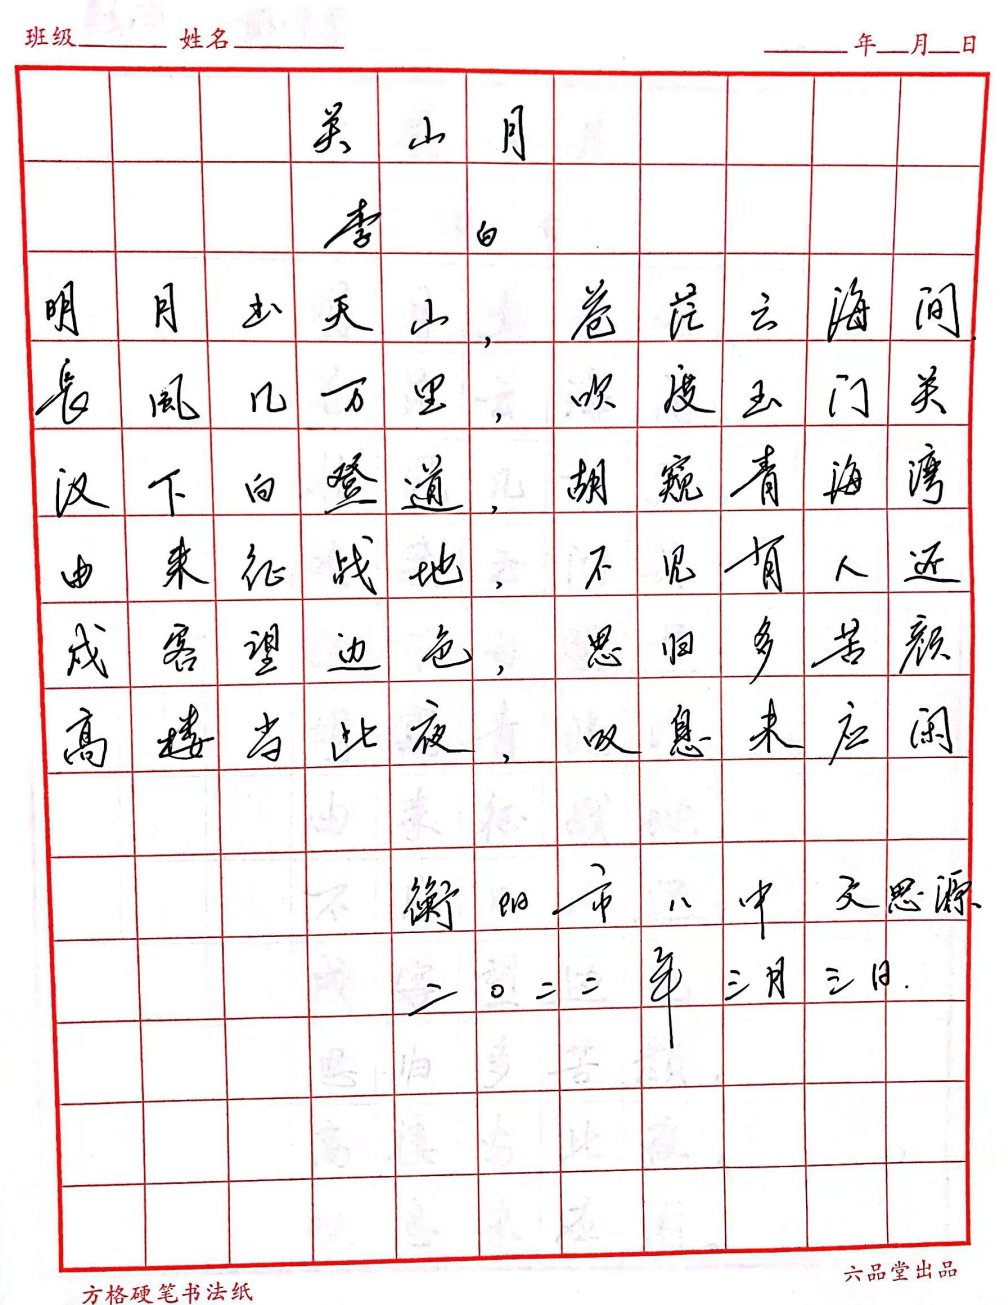 班级 姓名 年 月 日
关山月
李白
明月出天山,苍茫云海间.
長風几万里,吹度玉门关
汉下白登道,胡窥青海湾
由来征战地,不见有人还
戍客望边色,思归多苦颜
高楼当此夜,叹息未应闲
衡阳市八中文思源
二〇二二年三月三日.
方格硬笔书法纸
六品堂出品